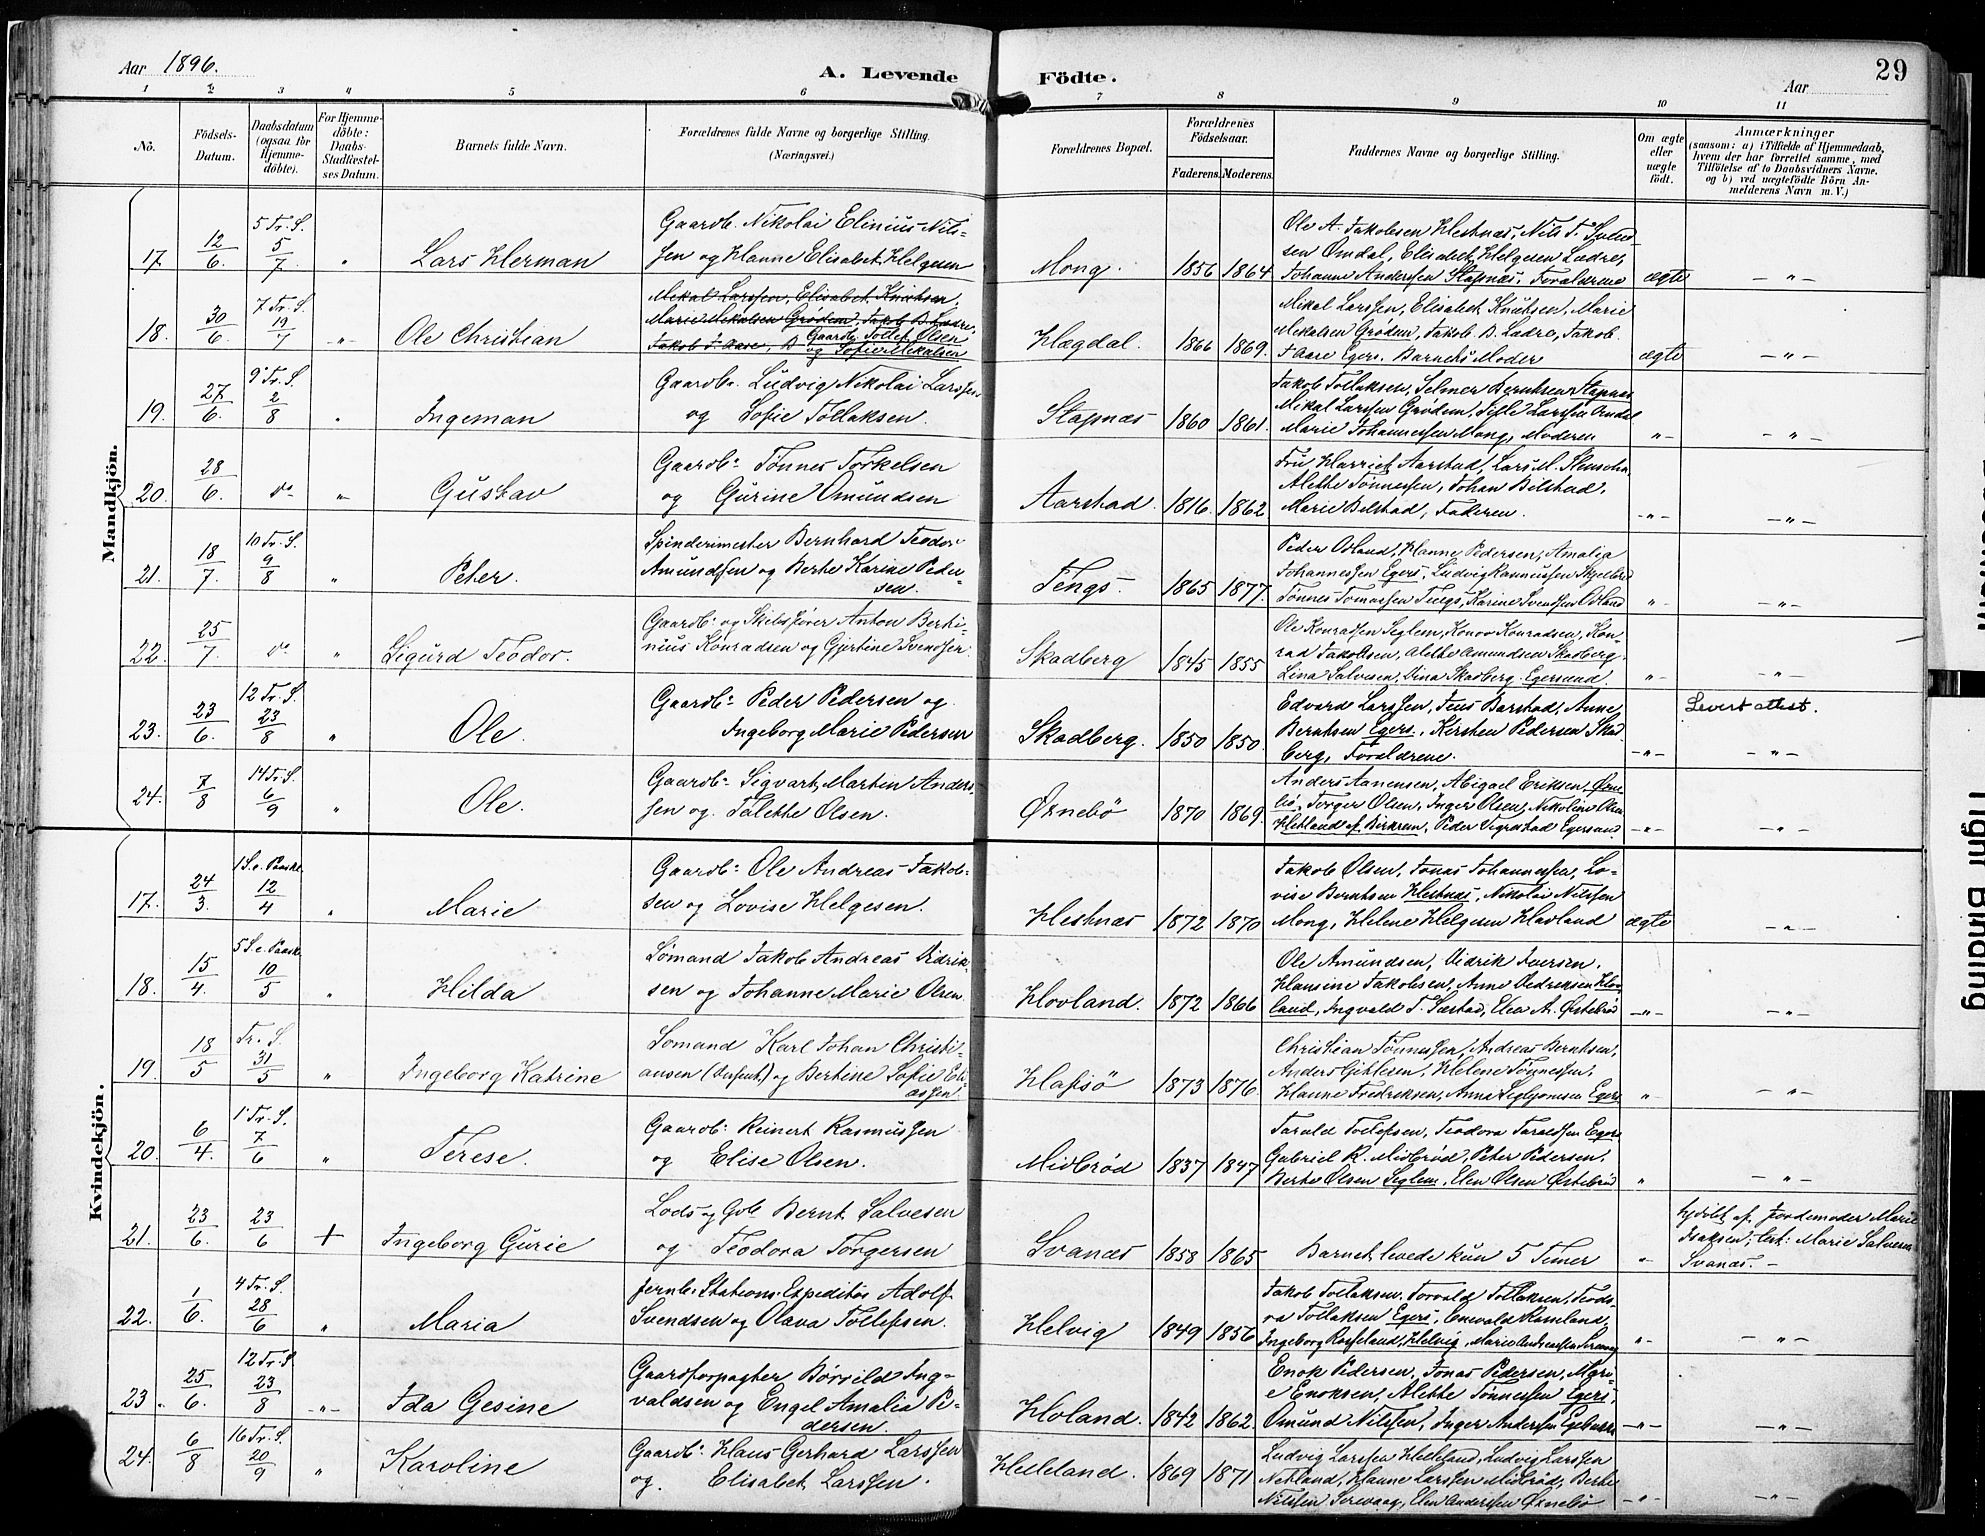 Aar 1896.
A. Levende Födte.
Aar
29
1 2 3 4 5 6 7 8 9 10 11
No.
Födsels-Datum.
Daabsdatum (ogsaa for Hjemmedöbte).
For Hjemmedöbte: Daabs-Stadfæstelses Datum.
Barnets fulde Navn.
Forældrenes fulde Navne og borgerlige Stilling.
(Næringsvei.)
Forældrenes Bopæl.
Forældrenes Födselsaar.
Faderens. Moderens.
Faddernes Navne og borgerlige Stilling.
Om ægte eller uægte födt.
Anmærkninger
(saasom: a) i Tilfælde af Hjemmedaab, hvem der har forrettet samme, med Tilföielse af to Daabsvidners Navne, og b) ved uægtefödte Börn Anmelderens Navn m. V.)
Mandkjön.
17. 12/6. 5 Tr. S. 5/7 " Lars Herman
Gaardb. Nikolai Elinius Nils-
sen og Hanne Elisabet Helgesen
Mong. 1856 1864
Ole A. Jakobsen Hestnæs, Nils T. Svend-
sen Omdal, Elisabet Helgesen Lædre,
Johanne Anderssen Stapnæs, Forældrene
ægte — " —
18. 30/6. 7 Tr. S. 19/7 " Ole Christian
Mikal Larssen, Elisabet Knutsen,
Marie Mikalsen Grødem, Jakob B. Lædre,
Jakob T. Aase, B Gaardb. Tollef Olsen
og Sofie Mikalsen
Hægdal. 1866 1869.
Mikal Larssen, Elisabet Knutsen, Marie
Mikalsen Grødem, Jakob B. Lædre, Jakob
T. Aase Egers. Barnets Moder
ægte — " —
19. 27/6. 9 Tr. S. 2/8 " Ingeman
Gaardb. Ludvig Nikolai Larssen
og Sofie Tollaksen.
Stapnæs 1860 1861.
Jakob Tollaksen, Selmer Berntsen Stapnæs
Mikal Larssen Grødem, Sille Larssen Omdal
Marie Johannessen Mong, Moderen
" — " —
20. 28/6. do " Gustav
Gaardb. Tønnes Torkelsen
og Gurine Omundsen
Aarstad. 1816 1862.
Fru Harriet Aarstad, Lars M.
Alette Tønnessen, Johan Bilstad,
Marie Bilstad, Faderen.
" — " —
21. 18/7. 10 Tr. S. 9/8 " Peter.
Spinderimester Bernhard Teodor
Amundsen og Berte Karine Peder-
sen.
Tengs. 1865 1877.
Peder Osland, Hanne Pedersen, Amalia
Johannessen Egers., Ludvig Rasmussen
Tønnes Tomassen Tengs, Karine Svendsen Osland
" — " —
22. 25/7. do " Sigurd Teodor.
Gaardb. og Skibsfører Anton Berti-
nius Konradsen og Gjertine Svendsen.
Skadberg 1845 1855
Ole Konradsen Seglem, Konov Konradsen, Kon-
rad Jakobsen, Alette Amundsen Skadberg.
Lina Salvesen, Dina Skadberg. Egersund.
" — " —
23. 23/6. 12 Tr. S. 23/8 " Ole.
Gaardb. Peder Pedersen og
Ingeborg Marie Pedersen
Skadberg. 1850 1850.
Edvard Larssen, Jens Barstad, Anne
Berntsen Egers., Kirsten Pedersen Skad-
berg, Forældrene.
" Levert attest. — " —
24. 7/8 14 Tr. S. 6/9 " Ole.
Gaardb. Sigvart Martin Anders-
sen og Talette Olsen.
Ørnebö 1870 1869.
Anders Aanensen, Abigael Eriksen, Ørne-
bö, Torger Olsen, Inger Olsen, Nikoline Olsen
Hetland af Birkrem, Peder Egersund
" — " —
Kvindekjön.
17. 24/3. 1 S. e. Paaske 12/4 " Marie
Gaardb. Ole Andreas Jakob-
sen og Lovise Helgesen.
Hestnæs 1872 1870
Jakob Olsen, Jonas Johannessen, Lo-
vise Berntsen Hestnæs, Nikolai Nilssen
Mong, Helene Helgesen Havland
ægte — " —
18. 15/4. 5 S. e. Paaske 10/5 " Hilda
Sømand Jakob Andreas Didrik-
sen og Johanne Marie Olsen.
Hovland. 1872 1866
Ole Amundsen, Didrik Iversen.
Hansine Jakobsen, Anne Didriksen Hov-
land, Ingvald T. Sæstad, Elen A. Østebrød
" — " —
19. 18/5 Tr. S. 31/5 " Ingeborg Katrine
Sømand Karl Johan Christi-
ansen og Bertine Sofie Eli-
assen.
Hafsö 1873 1876
Christian Tønnessen, Andreas Berntsen,
Anders Gihlesen, Helene Tønnessen,
Hanne Fredriksen, Anna Egers
" — " —
20. 6/4. 1 Tr. S. 7/6 " Terese.
Gaardb. Reinert Rasmussen
og Elise Olsen.
Midbrød 1837 1847
Tarald Tollefsen, Teodora Taraldsen Egers
Gabriel R. Midbrød, Peter Pedersen,
Berte Olsen Seglem, Elen Olsen Østebrød
" — " —
21. 23/6. 23/6 + Ingeborg Gurie
Lods og Gb. Bernt Salvesen
og Teodora Torgersen
Svanæs 1858 1865
Barnet levede kun 5 Timer
" hjdöbt af Jordemoder Marie
Isaksen; test: Marie Salvesen
Svanæs. —
22. 1/6. 4 Tr. S. 28/6 " Maria
Jernb. Stations-Expeditör Adolf
Svendsen og Olava Tollefsen.
Helvig 1849 1856
Jakob Tollaksen, Torvald Tollaksen, Teodo-
ra Tollaksen Egers, Enevald Rameland,
Ingeborg Helvig, Marie Andreassen
" — " —
23. 25/6. 12 Tr. S. 23/8 " Ida Gesine
Gaardforpagter Børreld Ing-
valdsen og Engel Amalia Pe-
dersen.
Holand. 1842 1862.
Enok Pedersen, Jonas Pedersen, Mari-
e Enoksen, Alette Tønnessen Egers,
Omund Nilssen, Inger Anderssen
" — " —
24. 6/8 16 Tr. S. 20/9 " Karoline
Gaardb. Klaus Gerhard Larssen
og Elisabet Larssen.
Helleland. 1869 1871
Ludvig Larssen Helleland, Ludvig Larssen
Netland, Hanne Larssen Midbrød, Berte
Nilssen Sirevaag, Elen Anderssen Ørnebö
" — " —
Tight Binding